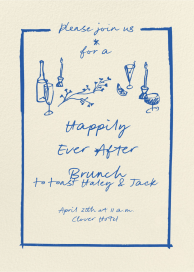 please join us
for a
Happily
Ever After
Brunch
to toast Haley & Jack
April 28th at 11 a.m.
Clover Hotel